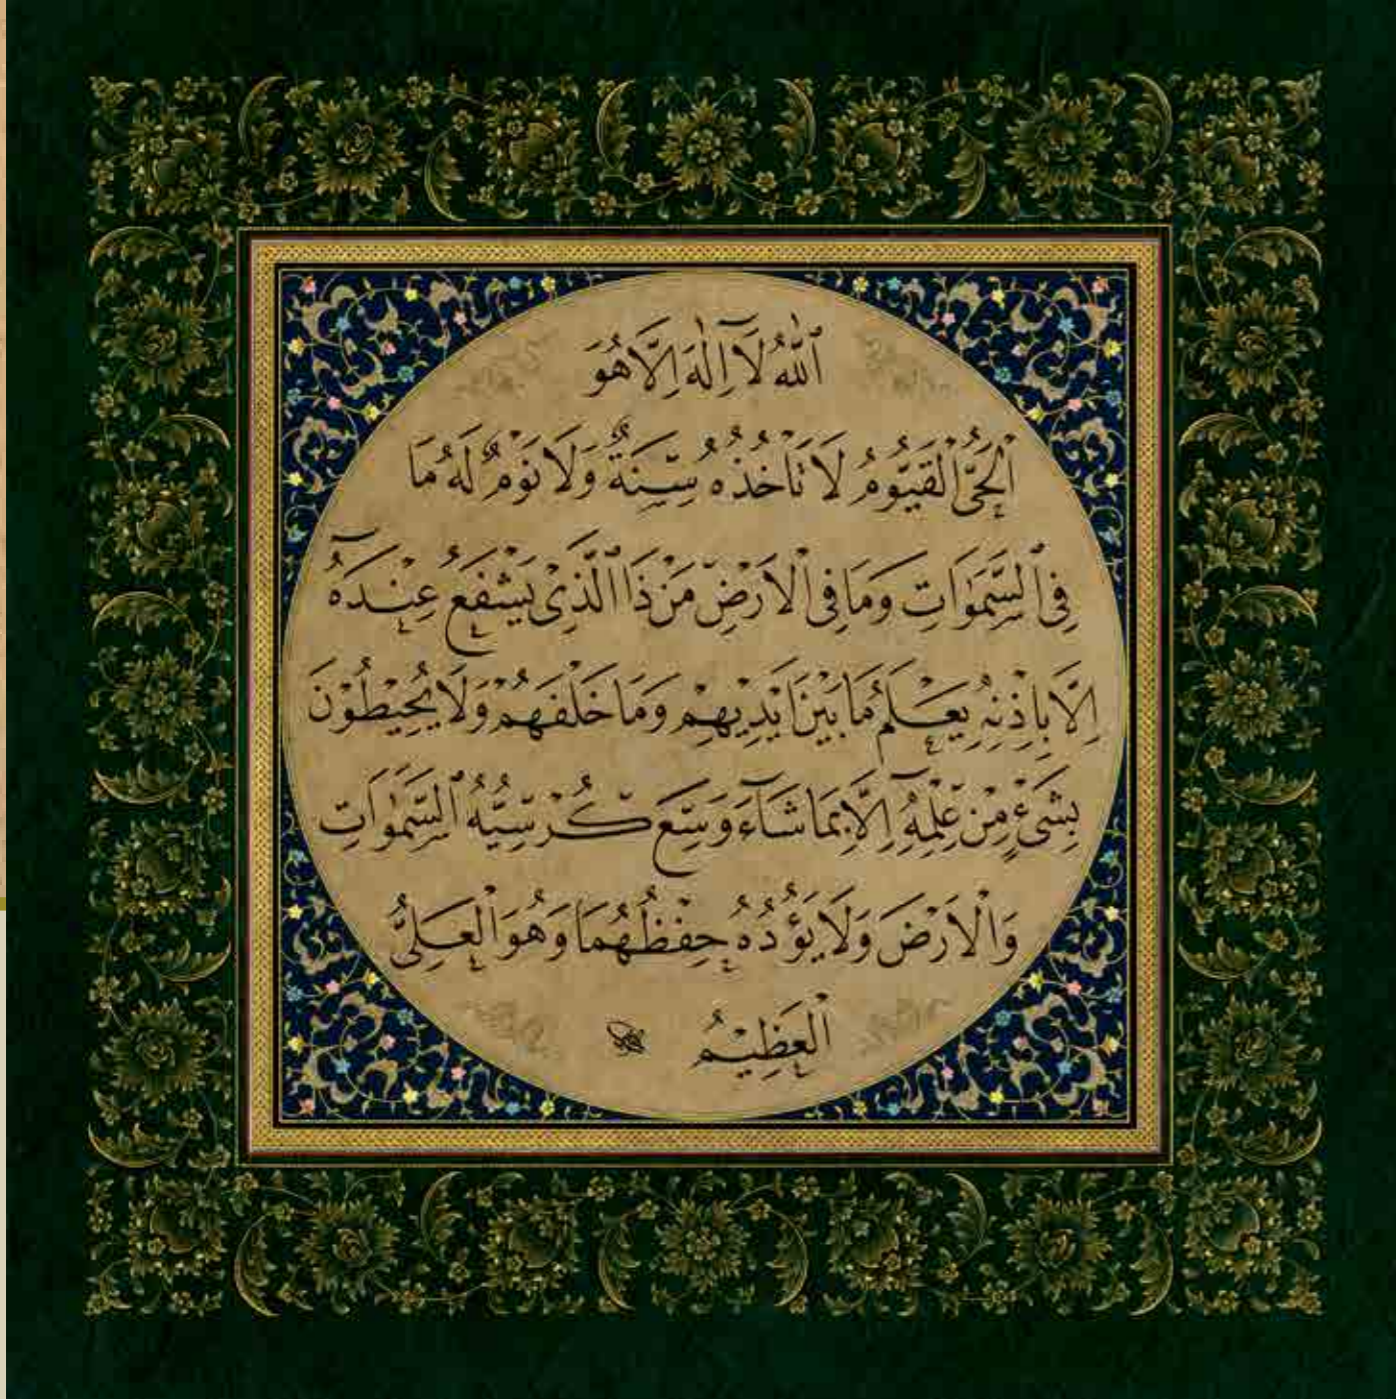 ٱللّٰهُ لَآ اِلٰهَ اِلَّا هُوَ
اَلْحَيُّ الْقَيُّومُ لَا تَأْخُذُهُ سِنَةٌ وَلَا نَوْمٌ لَهُ مَا
فِي ٱلسَّمٰوَاتِ وَمَا فِي الْاَرْضِ مَنْ ذَا الَّذِي يَشْفَعُ عِنْدَهُٓ
اِلَّا بِاِذْنِهِ يَعْلَمُ مَا بَيْنَ اَيْدِيهِمْ وَمَا خَلْفَهُمْ وَلَا يُحِيطُونَ
بِشَيْءٍ مِنْ عِلْمِهِٓ اِلَّا بِمَا شَآءَ وَسِعَ كُرْسِيُّهُ ٱلسَّمٰوَاتِ
وَالْاَرْضَ وَلَا يَؤُدُهُ حِفْظُهُمَا وَهُوَ الْعَلِيُّ
الْعَظِيمُ